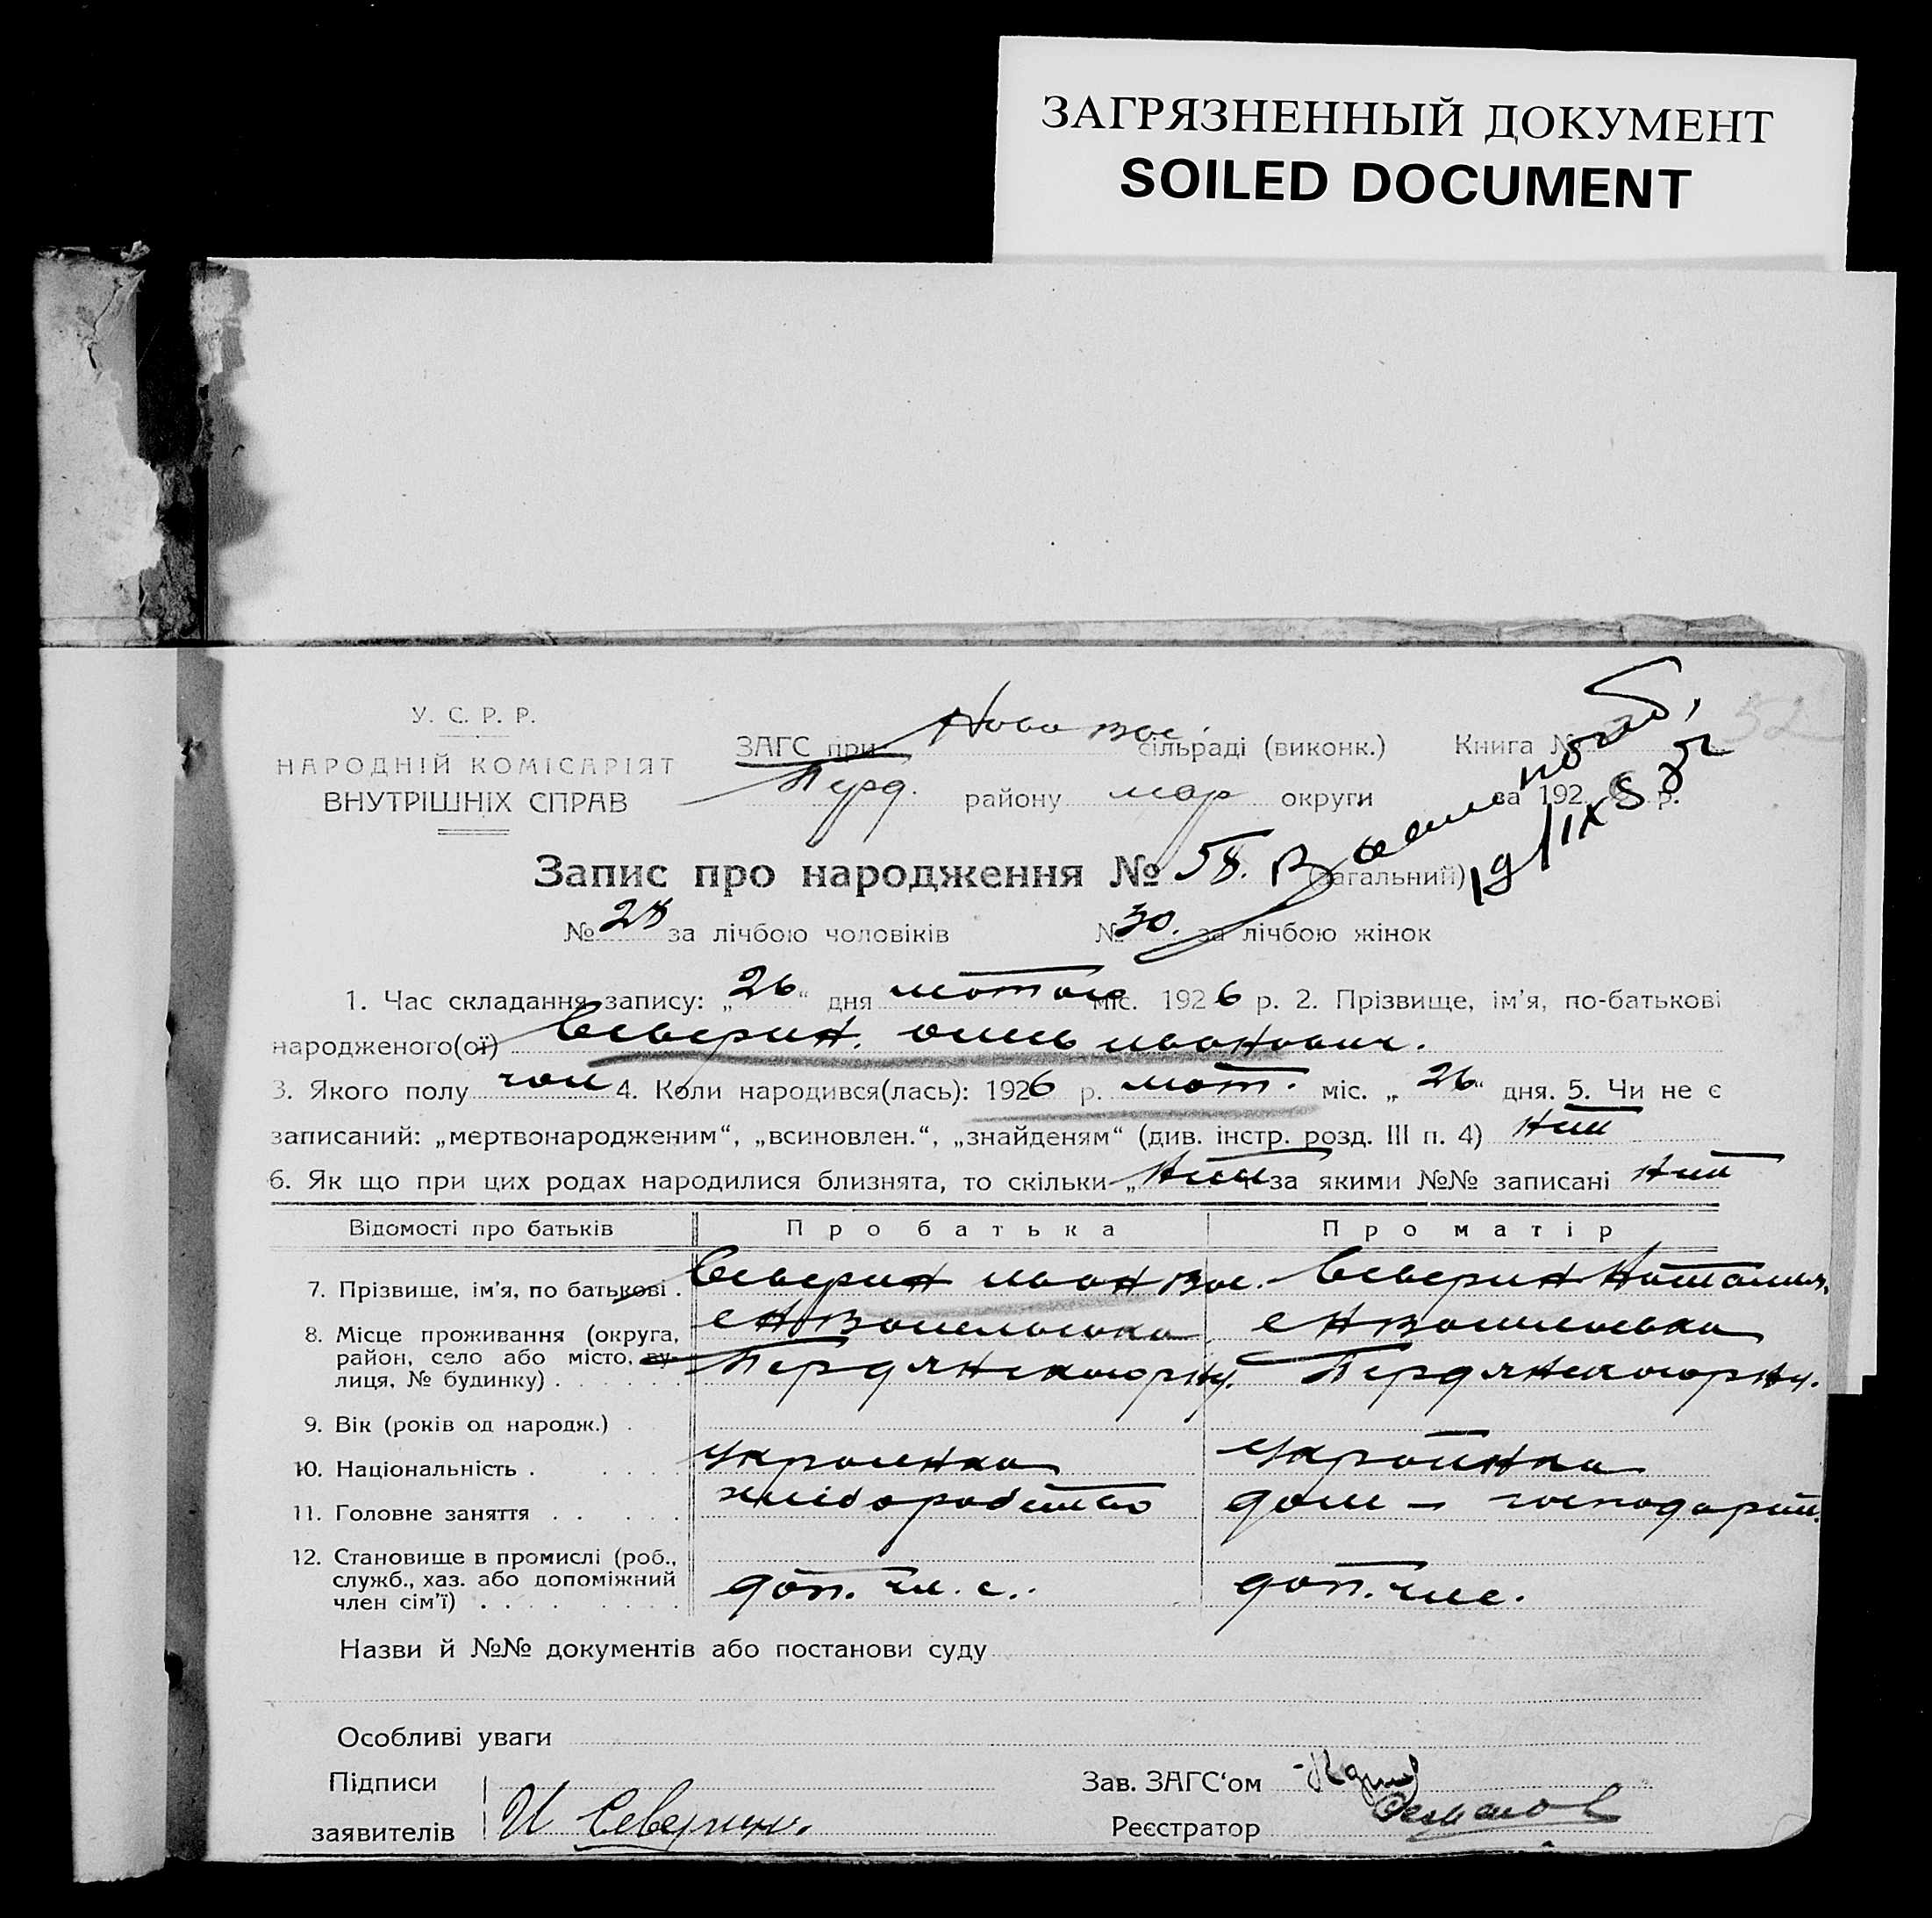 ЗАГРЯЗНЕННЫЙ ДОКУМЕНТ
SOILED DOCUMENT
52
У. С. Р. Р.
НАРОДНІЙ КОМІСАРІЯТ
ВНУТРІШНІХ СПРАВ
ЗАГС при Ново Вас. сільраді (виконк.) Книга №
району мар округи за 192 р.
Запис про народження № 58. (загальний)
№ 28 за лічбою чоловіків № 30. за лічбою жінок
1. Час складання запису: „26“ дня лютого міс. 1926 р. 2. Прізвище, ім'я, по-батькові
народженого(ої) Северин. иванович.
3. Якого полу чол 4. Коли народився(лась): 1926 р. лют. міс. „26“ дня. 5. Чи не є
записаний: „мертвонародженим“, „всиновлен.“, „знайденям“ (див. інстр. розд. III п. 4) Нит
6. Як що при цих родах народилися близнята, то скільки „ за якими №№ записані Нит
Відомості про батьків Про батька Про матір
7. Прізвище, ім'я, по батькові . Северин иван Вас. Северин Наталия.
8. Місце проживання (округа, с Н Васильовка с Н Васильовка
район, село або місто, ву-
лиця, № будинку) . . . . . .
9. Вік (років од народж.) .
10. Національність . . . . . украинка украинка
11. Головне заняття . . . . . хліборобство дом - господарит.
12. Становище в промислі (роб.,
служб., хаз. або допоміжний доп. чл. с. доп. чл с.
член сім'ї) . . . . . . . .
Назви й №№ документів або постанови суду
Особливі уваги
Підписи Зав. ЗАГС'ом
заявителів И Северин. Реєстратор